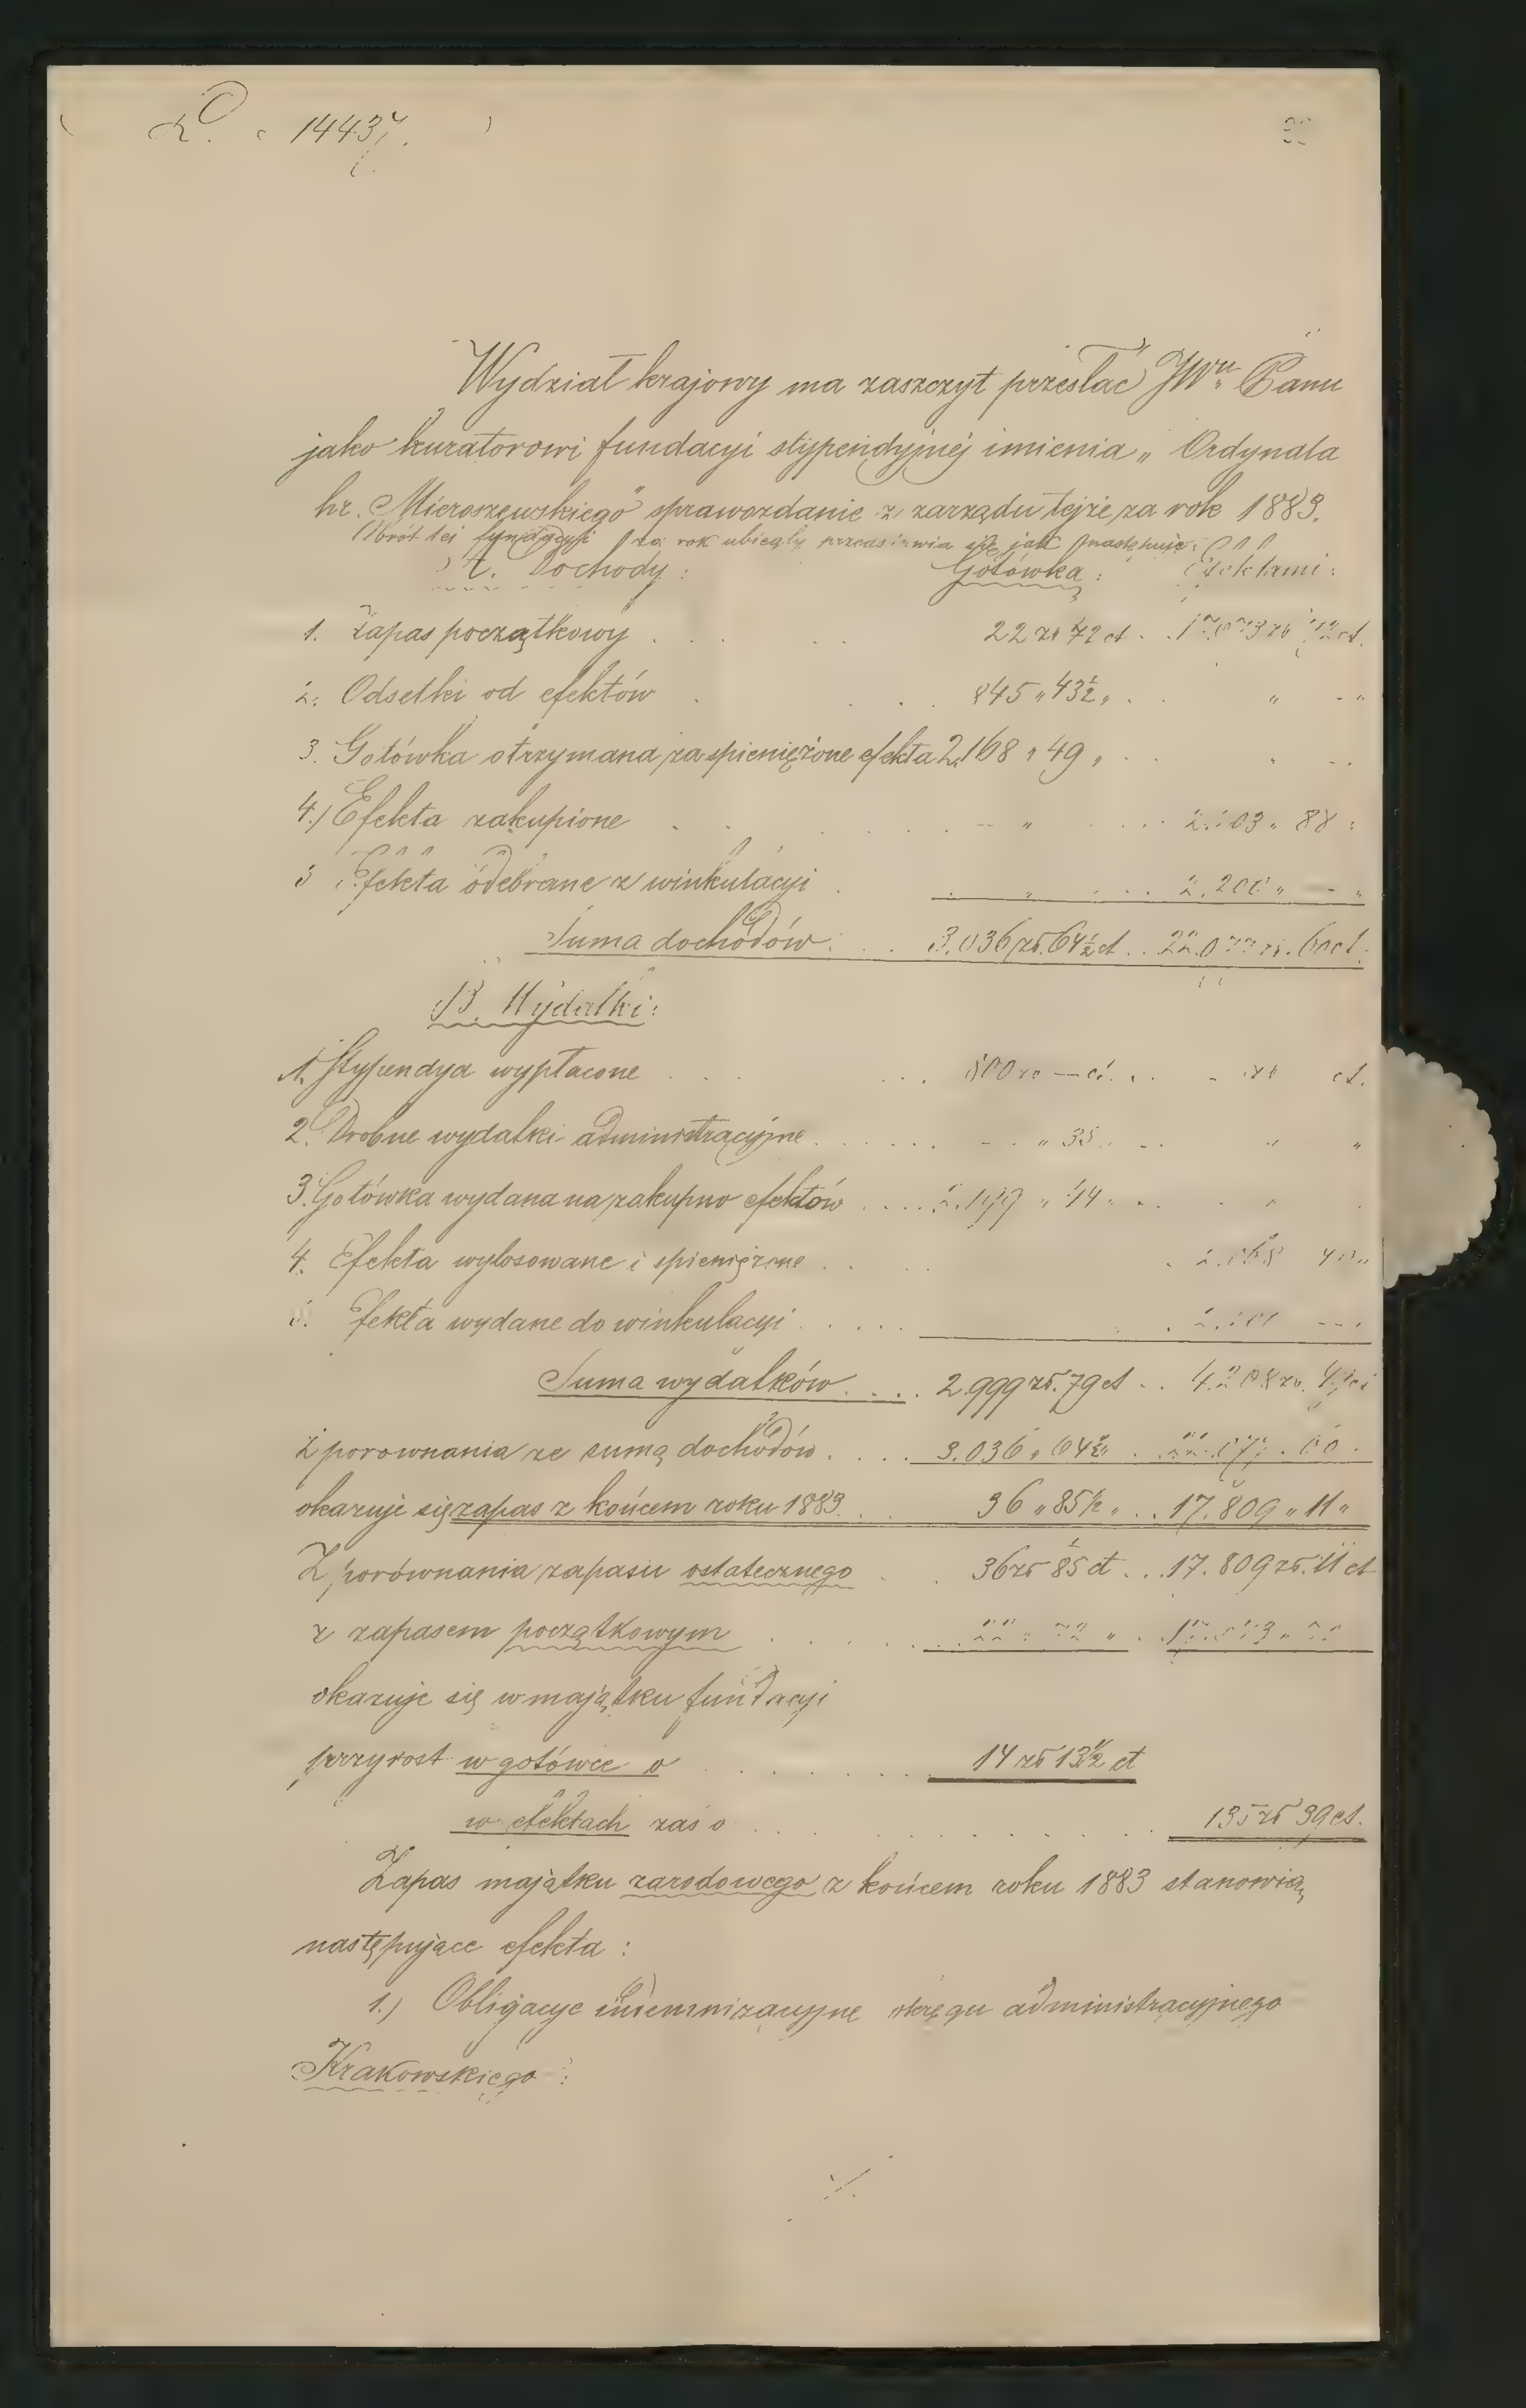 14437.
Wydział krajowy ma zaszczyt przesłać JWu Panu
jako kuratorowi fundacyi stypendyjnej imienia „Ordynata
hr. Mieroszewskiego" sprawozdanie z zarządu tejże za rok 1883.
Obrót tej fundacyi za rok ubiegły przedstawia się jak następuje:
Dochody: Gotówka: Efektami:
1. Zapas początkowy . . . 22 zł 72 ct.
2. Odsetki od efektów . . . 845 „ 43½ „
3. Gotówka otrzymana za spieniężone efekta 2.168 „ 49 „
4.) Efekta zakupione . . . — „ 88
5 Efekta odebrane z winkulacyi . . . 2.200 „ - „
Suma dochodów: . . 3.036 zł. 64½ ct . . 60 ct.
B. Wydatki:
1. Stypendya wypłacone . . . 800 zł — ct. . . zł ct.
2. Drobne wydatki administracyjne . . . - „ 35
3. Gotówka wydana na zakupno efektów
4. Efekta wylosowane i spieniężone
5. Efekta wydane do winkulacyi
Suma wydatków . . . . 2.999 zł. 79 ct . .
Z porównania ze sumą dochodów . . . . 3.036 „ 64½ „
okazuje się zapas z końcem roku 1883 . . 36 „ 85½ „ . . 17.809 „ 11 „
Z porównania zapasu ostatecznego . . 36 zł 85 ct . . . 17.809 zł. 11 ct
z zapasem początkowym
okazuje się w majątku fundacyi
przyrost w gotówce o . . . 14 zł 13½ ct
w efektach zaś o . . . 135 zł 39 ct.
Zapas majątku zarodowego z końcem roku 1883 stanowią
następujące efekta:
1.) Obligacye indemnizacyjne okręgu administracyjnego
Krakowskiego: